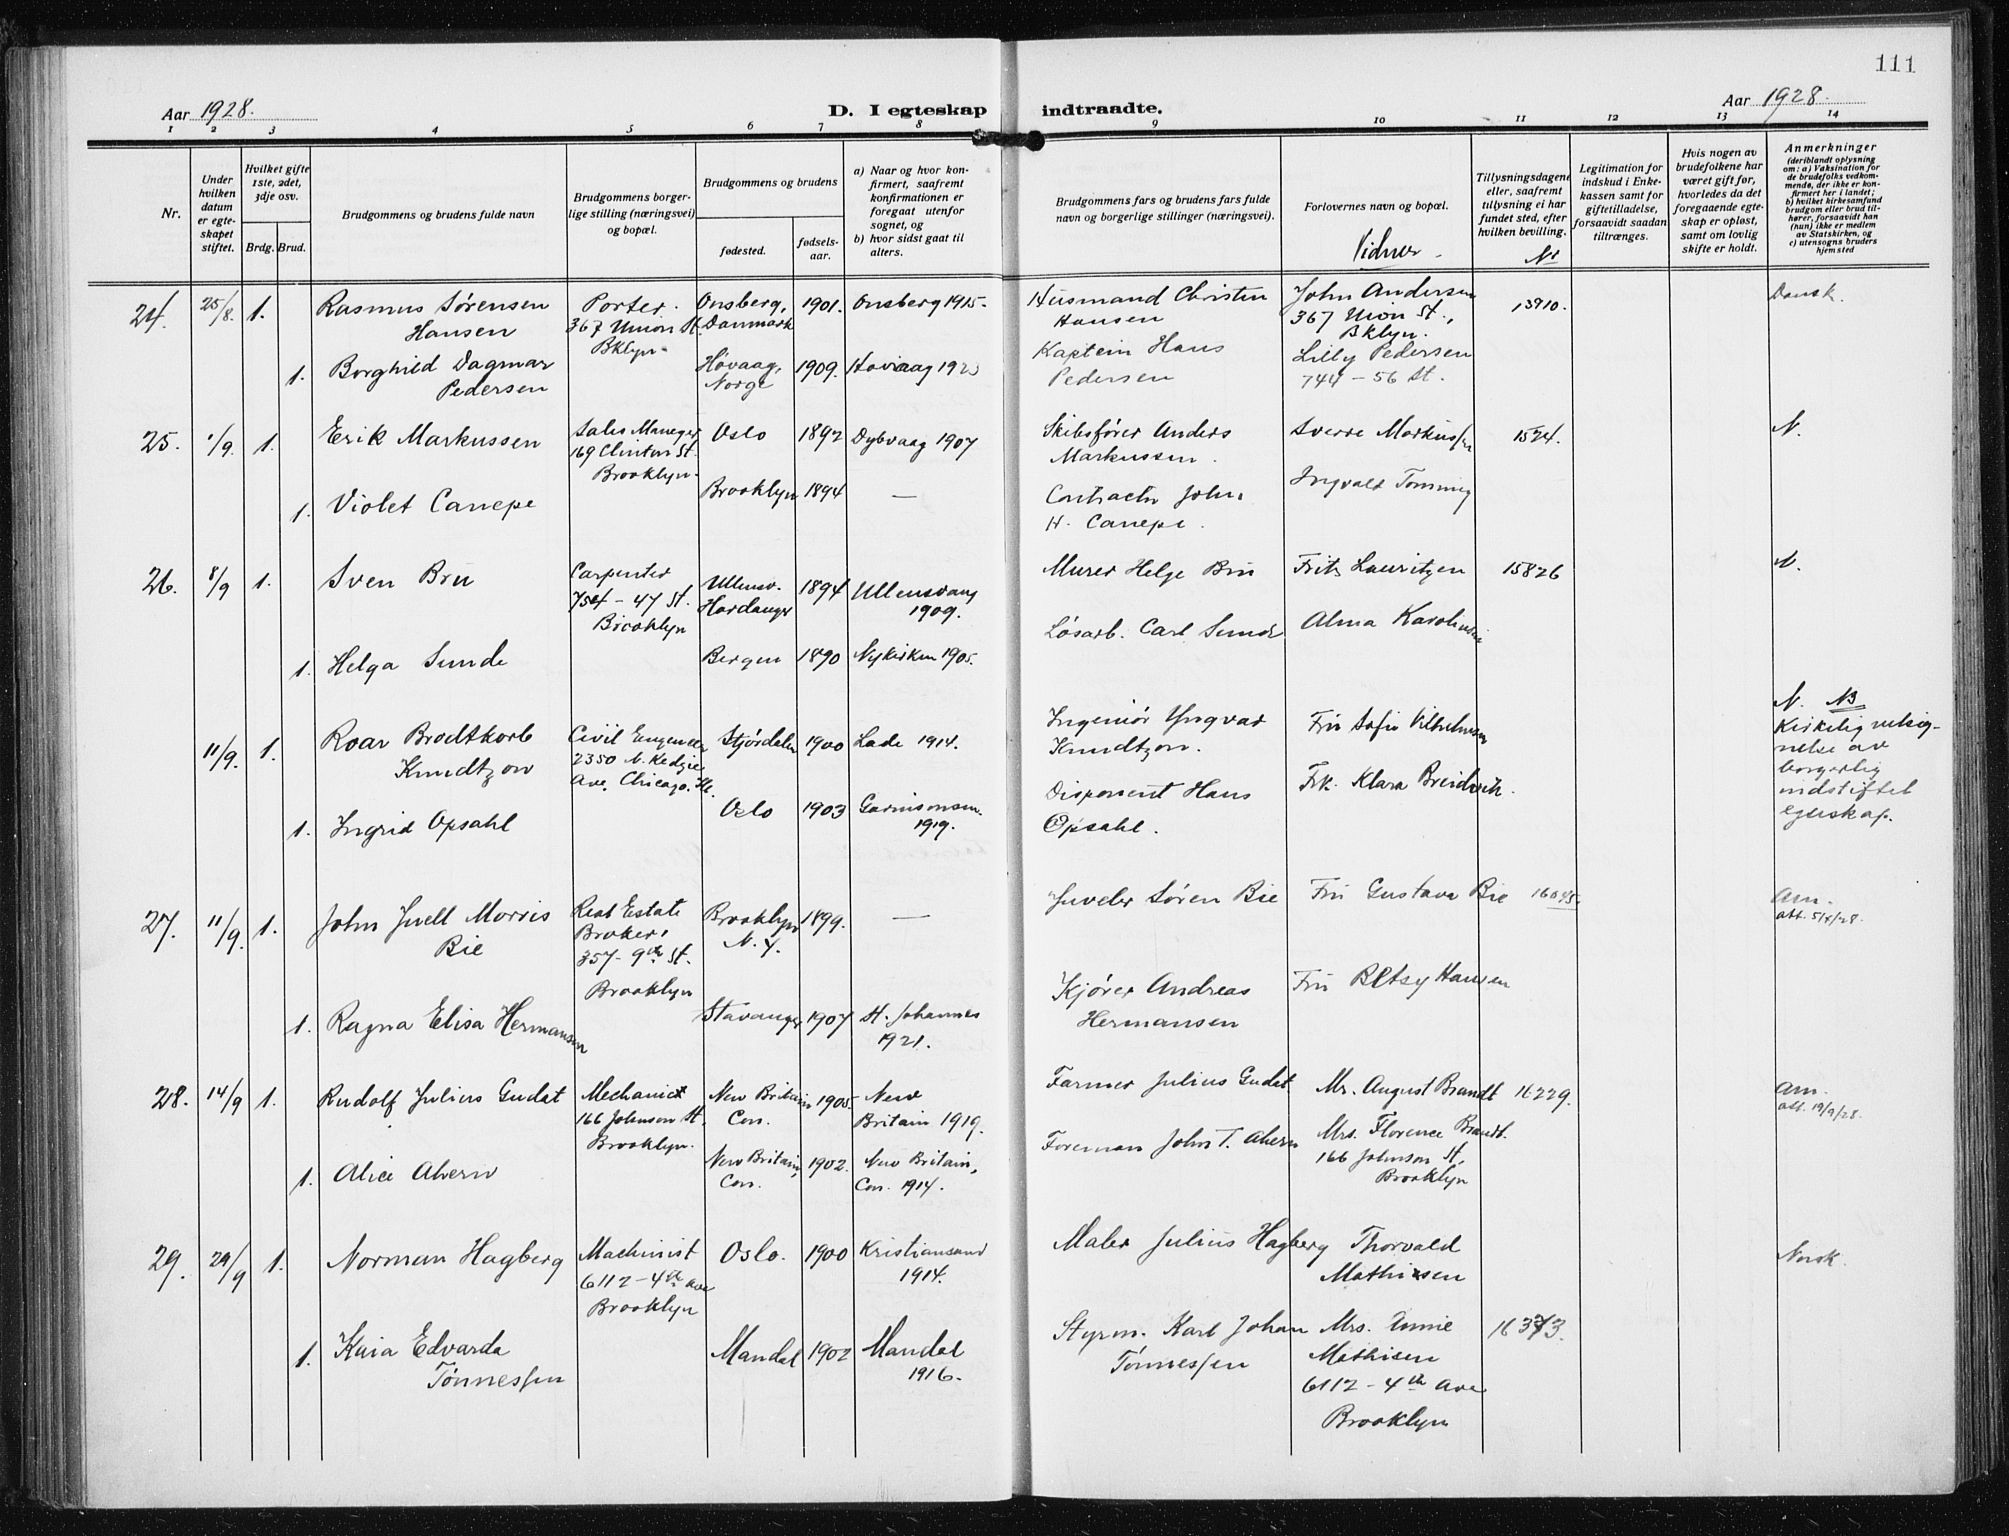 111
Aar 1928.
D. I egteskap indtraadte.
Aar 1928.
1 2 3 4 5 6 7 8 9 10 11 12 13 14
Nr.
Under hvilken datum er egteskapet stiftet.
Hvilket gifte 1ste, 2det, 3dje osv.
Brdg. Brud.
Brudgommens og brudens fulde navn
Brudgommens borgerlige stilling (næringsvei) og bopæl.
Brudgommens og brudens
fødested.
fødselsaar.
a) Naar og hvor konfirmert, saafremt konfirmationen er foregaat utenfor sognet, og
b) hvor sidst gaat til alters.
Brudgommens fars og brudens fars fulde navn og borgerlige stillinger (næringsvei).
Forlovernes navn og bopæl.
Vidner.
Tillysningsdagene eller, saafremt tillysning ei har fundet sted, efter hvilken bevilling.
Nr
Legitimation for indskud i Enkekassen samt for giftetilladelse, forsaavidt saadan tiltrænges.
Hvis nogen av brudefolkene har været gift før, hvorledes da det foregaaende egteskap er opløst, samt om lovlig skifte er holdt.
Anmerkninger
(deriblandt oplysning om: a) Vaksination for de brudefolks vedkommende, der ikke er konfirmert her i landet; b) hvilket kirkesamfund brudgom eller brud tilhører, forsaavidt han (hun) ikke er medlem av Statskirken, og c) utensogns bruders hjemsted
24. 25/8. 1. Rasmus Sørensen Porter. Onsberg, 1901. Onsberg 1915. Husmand Christen John Andersen 13910. Dansk.
Hansen 367 Union St. Danmark Hansen 367 Union St.,
Bklyn. Bklyn.
1. Borghild Dagmar Høvaag, 1909. Høvaag 1923 Kaptein Hans Lilly Pedersen
Pedersen Norge Pedersen 744 - 56 St.
25. 1/9. 1. Erik Markussen Sales Maneger Oslo 1892 Dybvaag 1907 Skibsfører Anders Sverre Markussen 1524. N.
169 Clinton St. Markussen.
Brooklyn.
1. Violet Canepe Brooklyn 1894 — Contractor John Ingvald Tommig
H. Canepe.
26. 8/9 1. Sven Bru Carpenter Ullensv. 1894 Ullensvang Murer Helge Bru Frits Lauritzen 15826 N.
754 - 47 St. Hardanger 1909.
Brooklyn
1. Helga Sunde Bergen 1890 Nykirken 1905. Løsarb. Carl Sunde Alma Karolinsen
11/9. 1. Roar Brodtkorb Civil Engeneer Stjørdalen 1900 Lade 1914. Ingeniør Yngvar Fru Sofie Vilhelmsen N. NB
Knudtzon 2350 N. Kedzie Knudtzon. Kirkelig velsig-
Ave, Chicago. Ill. nelse av
borgerlig
indstiftet
egteskap.
1. Ingrid Opsahl Oslo 1903 Garnisonsm. Disponent Hans Frk. Klara Breidvik.
1919. Opsahl.
27. 11/9. 1. John Juell Morris Real Estate Brooklyn 1899. — Juveler Søren Bie Fru Gustava Bie 16045. Am.
Bie Broker, N. Y. att. 5/8/28.
357 - 9th St.
Brooklyn
1. Ragna Elisa Hermansen Stavanger 1907 St. Johannes Kjører Andreas Fru Betsy Hansen
1921. Hermansen
28. 14/9 1. Rudolf Julius Gudat Mechanict New Britain 1905. New Farmer Julius Gudat Mr. August Brandt 16229. Am.
166 Johnson St. Con. Britain 1919. att. 19/9/28.
Brooklyn.
1. Alice Ahern New Britain, 1902. New Britain, Foreman John T. Ahern Mrs. Florence Brandt.
Con. Con. 1914. 166 Johnson St,
Brooklyn
29. 29/9 1. Norman Hagberg Machinist Oslo. 1900 Kristiansand Maler Julius Hagberg Thorvald Norsk.
6112 - 4th Ave 1914. Mathisen
Brooklyn
1. Kaia Edvarda Mandal 1902 Mandal Styrm. Karl Johan Mrs. Annie 16373.
Tønnessen 1916. Tønnessen Mathisen
6112 - 4th Ave
Brooklyn